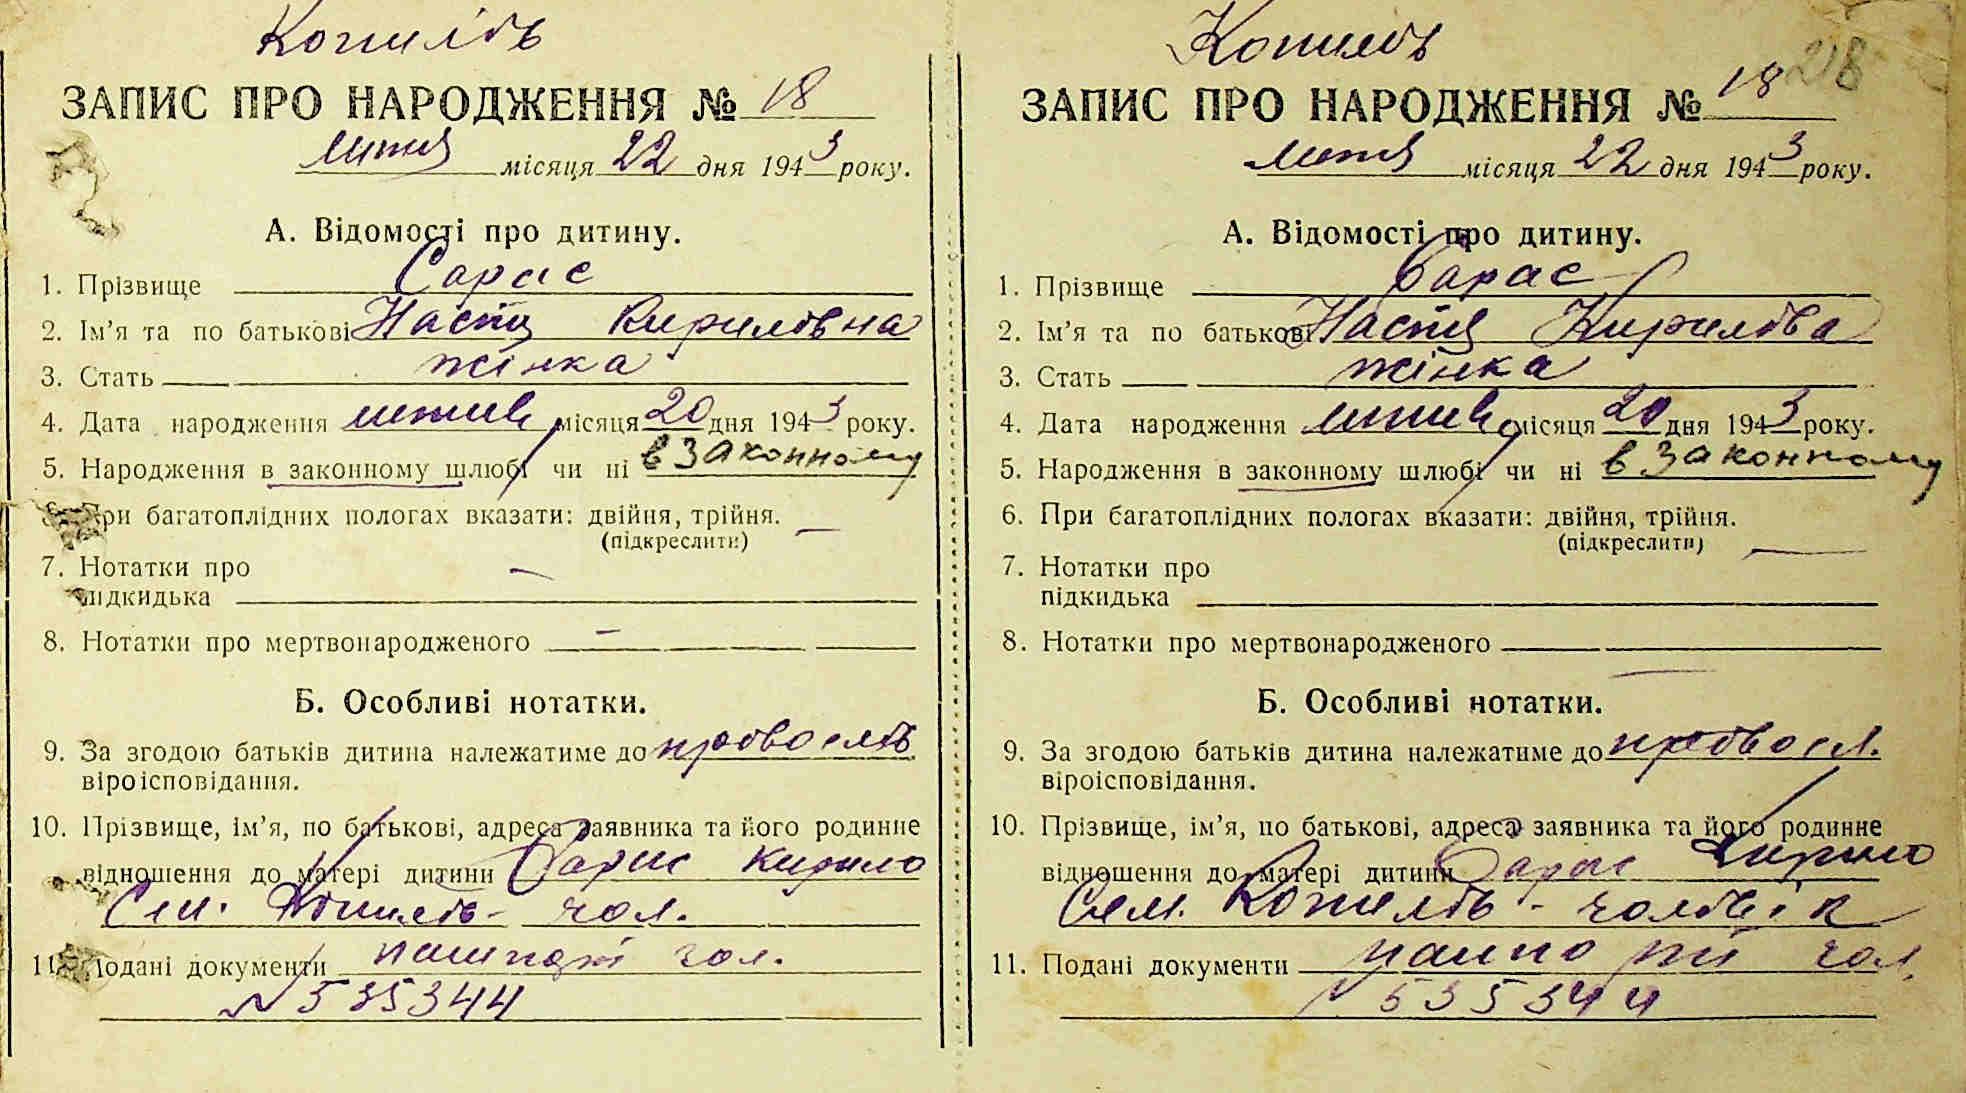 Копилів
ЗАПИС ПРО НАРОДЖЕННЯ № 18
липня місяця 22 дня 1943 року.
А. Відомості про дитину.
1. Прізвище Сарас
2. Ім'я та по батькові Настя Кирилівна
3. Стать жінка
4. Дата народження липня місяця 20 дня 1943 року.
5. Народження в законному шлюбі чи ні в законному
6. При багатоплідних пологах вказати: двійня, трійня. —
(підкреслити)
7. Нотатки про —
підкидька
8. Нотатки про мертвонародженого —
Б. Особливі нотатки.
9. За згодою батьків дитина належатиме до
віроісповідання.
10. Прізвище, ім'я, по батькові, адреса заявника та його родинне
відношення до матері дитини Сарас Кирило
Сем. Копилів - чол.
11. Подані документи пашпорт чол.
№ 535344
Копилів
218
ЗАПИС ПРО НАРОДЖЕННЯ № 18
липня місяця 22 дня 1943 року.
А. Відомості про дитину.
1. Прізвище Сарас
2. Ім'я та по батькові Настя Кирилівна
3. Стать жінка
4. Дата народження липня місяця 20 дня 1943 року.
5. Народження в законному шлюбі чи ні в законному
6. При багатоплідних пологах вказати: двійня, трійня.
(підкреслити) —
7. Нотатки про
підкидька
8. Нотатки про мертвонародженого —
Б. Особливі нотатки.
9. За згодою батьків дитина належатиме до
віроісповідання.
10. Прізвище, ім'я, по батькові, адреса заявника та його родинне
відношення до матері дитини Сарас Кирило
Сем. Копилів - чоловік
11. Подані документи пашпорт чол.
№ 535344